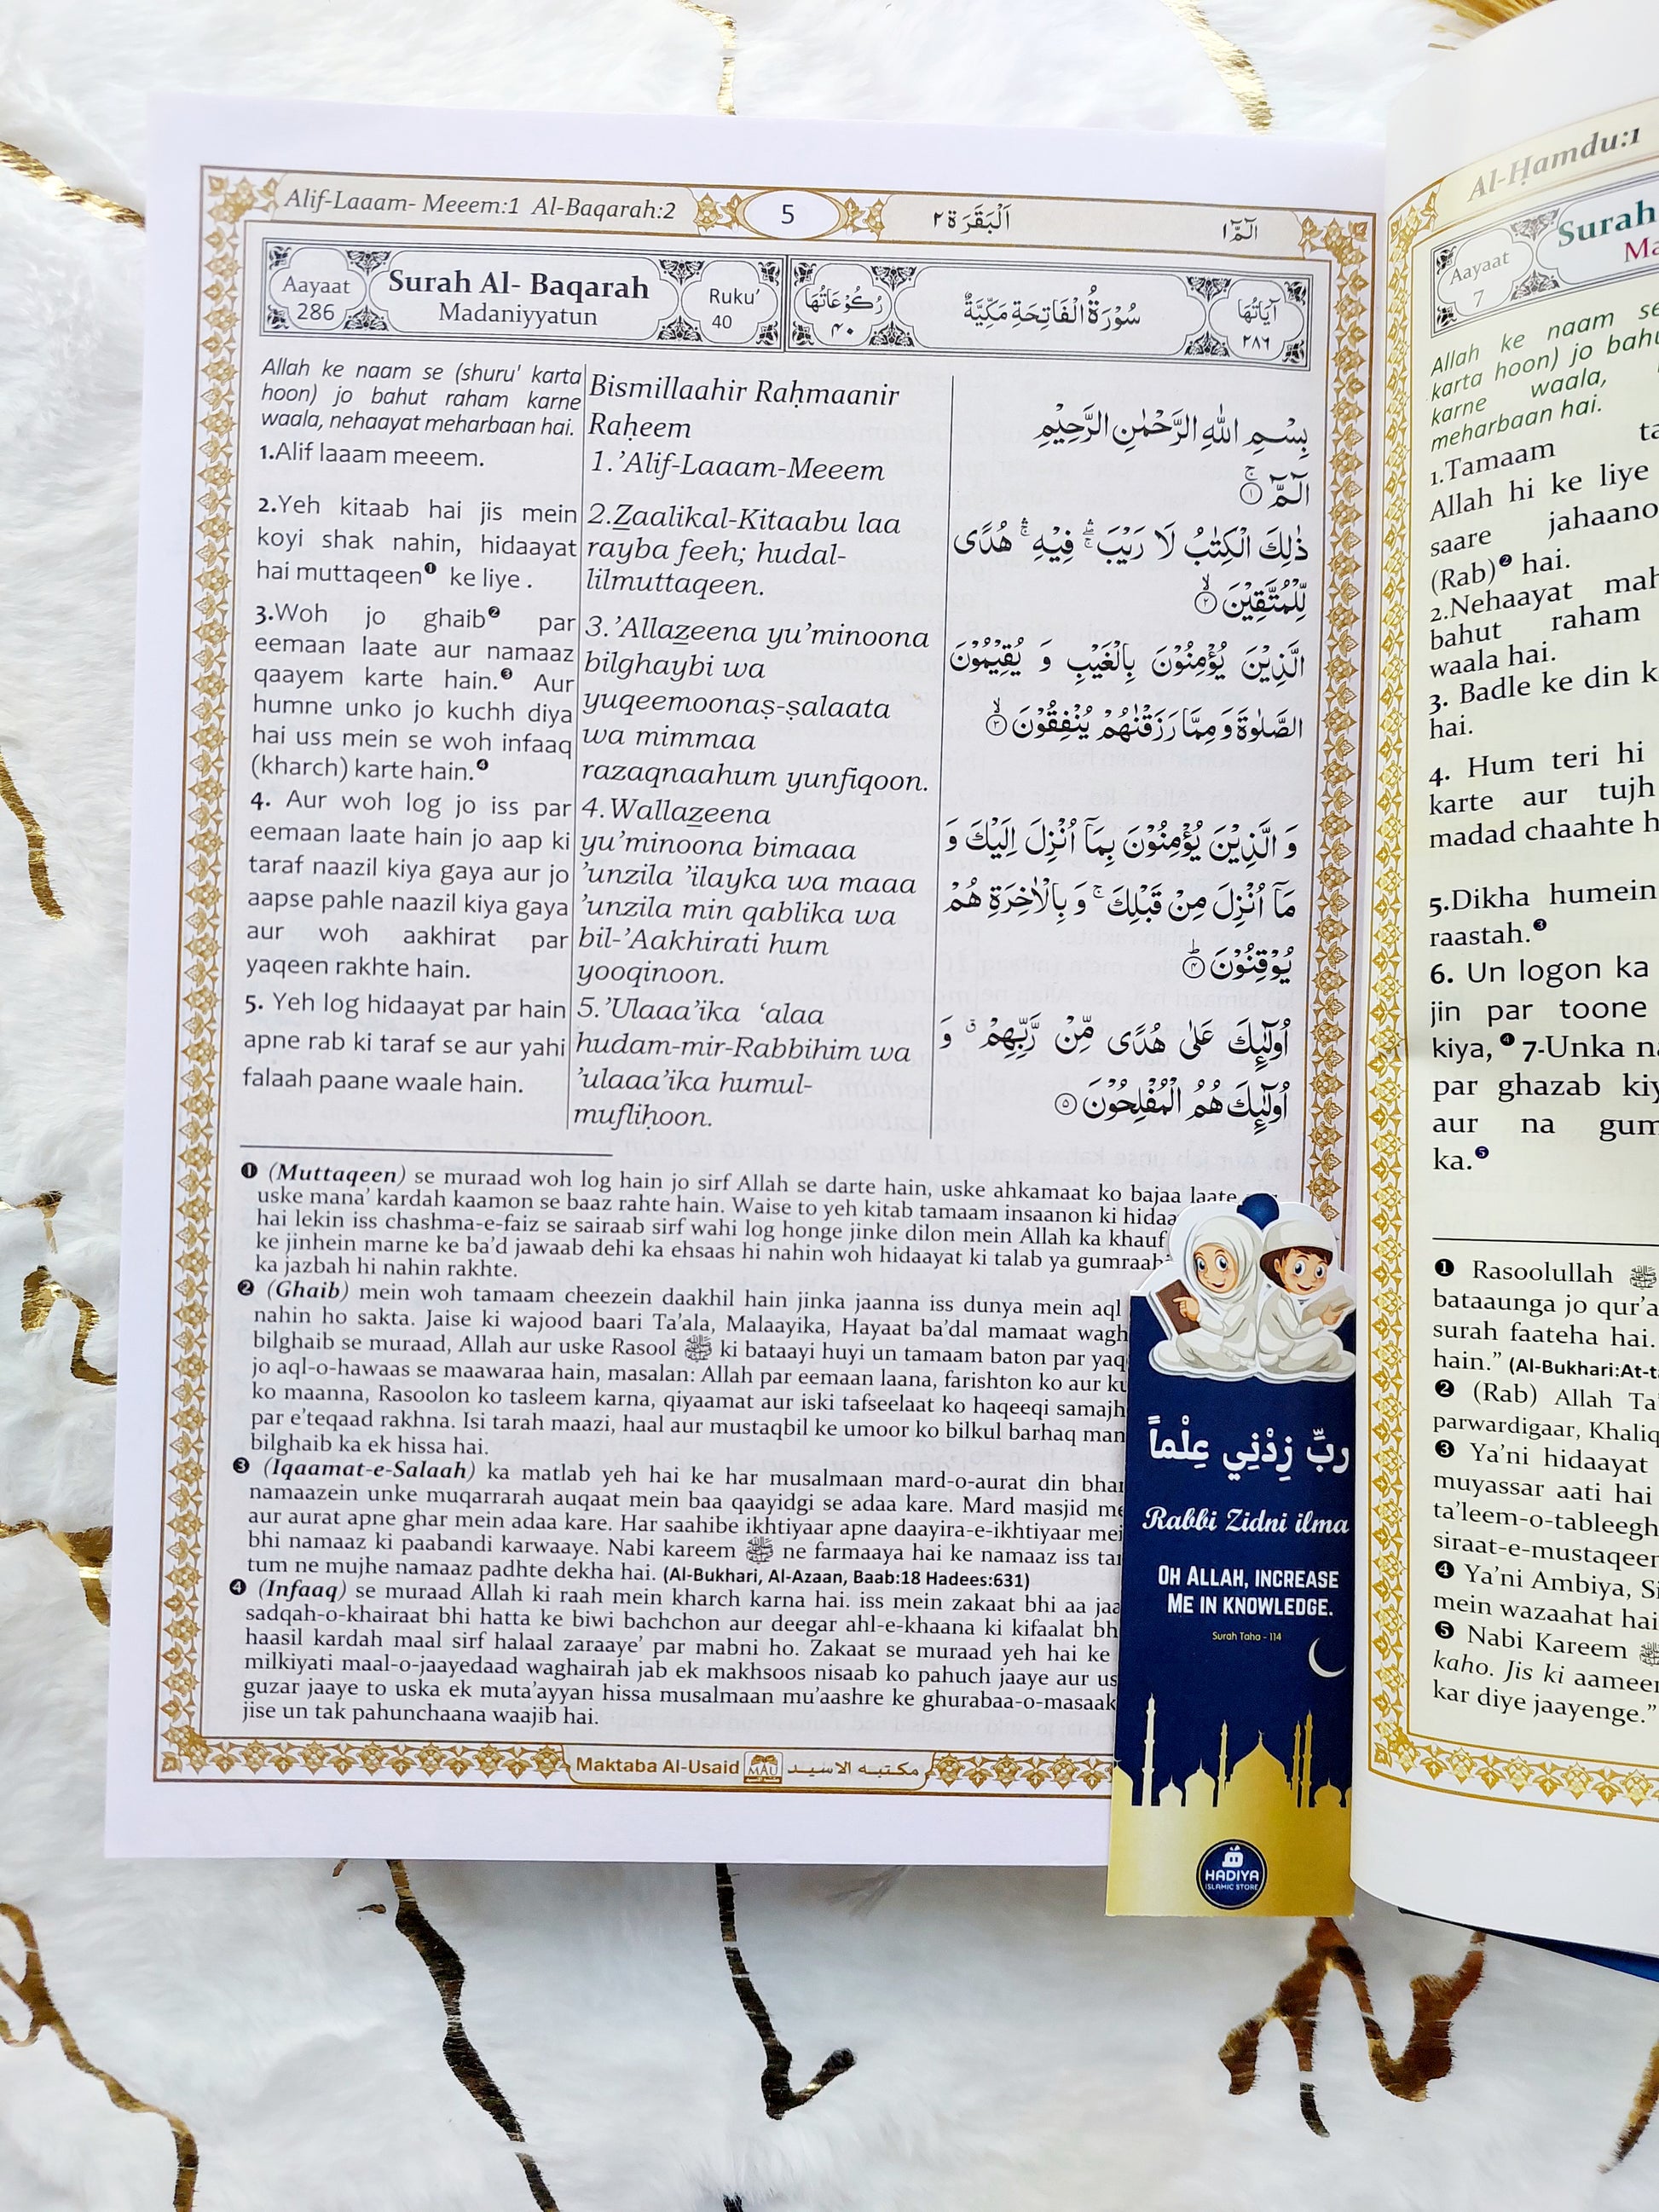 Alif-Laaam- Meeem:1 Al-Baqarah:2
5
اَلْبَقَرَة ٢
الٓمّٓ ١
Aayaat
286
Surah Al- Baqarah
Madaniyyatun
Ruku’
40
رُكُوْعَاتُهَا
٤٠
سُوْرَةُ الْفَاتِحَةِ مَكِّيَّةٌ
آيَاتُهَا
٢٨٦
Allah ke naam se (shuru' karta
hoon) jo bahut raham karne
waala, nehaayat meharbaan hai.
1.Alif laaam meeem.
2.Yeh kitaab hai jis mein
koyi shak nahin, hidaayat
hai muttaqeen❶ ke liye .
3.Woh jo ghaib❷ par
eemaan laate aur namaaz
qaayem karte hain.❸ Aur
humne unko jo kuchh diya
hai uss mein se woh infaaq
(kharch) karte hain.❹
4. Aur woh log jo iss par
eemaan laate hain jo aap ki
taraf naazil kiya gaya aur jo
aapse pahle naazil kiya gaya
aur woh aakhirat par
yaqeen rakhte hain.
5. Yeh log hidaayat par hain
apne rab ki taraf se aur yahi
falaah paane waale hain.
Bismillaahir Raḥmaanir
Raḥeem
1.’Alif-Laaam-Meeem
2.Z̲aalikal-Kitaabu laa
rayba feeh; hudal-
lilmuttaqeen.
3.’Allaz̲eena yu’minoona
bilghaybi wa
yuqeemoonaṣ-ṣalaata
wa mimmaa
razaqnaahum yunfiqoon.
4.Wallaz̲eena
yu’minoona bimaaa
’unzila ’ilayka wa maaa
’unzila min qablika wa
bil-’Aakhirati hum
yooqinoon.
5.’Ulaaa’ika ‘alaa
hudam-mir-Rabbihim wa
’ulaaa’ika humul-
mufliḥoon.
بِسْمِ اللهِ الرَّحْمٰنِ الرَّحِيْمِ
الٓمّٓ ۚ ١
ذٰلِكَ الْكِتٰبُ لَا رَيْبَ ۛۖ فِيْهِ ۛۚ هُدًى
لِّلْمُتَّقِيْنَ ۙ ٢
الَّذِيْنَ يُؤْمِنُوْنَ بِالْغَيْبِ وَ يُقِيْمُوْنَ
الصَّلٰوةَ وَ مِمَّا رَزَقْنٰهُمْ يُنْفِقُوْنَ ۙ ٣
وَ الَّذِيْنَ يُؤْمِنُوْنَ بِمَآ اُنْزِلَ اِلَيْكَ وَ
مَآ اُنْزِلَ مِنْ قَبْلِكَ ۚ وَ بِالْاٰخِرَةِ هُمْ
يُوْقِنُوْنَ ؕ ٤
اُولٰٓئِكَ عَلٰى هُدًى مِّنْ رَّبِّهِمْ ۗ وَ
اُولٰٓئِكَ هُمُ الْمُفْلِحُوْنَ ٥
❶ (Muttaqeen) se muraad woh log hain jo sirf Allah se darte hain, uske ahkamaat ko bajaa laate
uske mana’ kardah kaamon se baaz rahte hain. Waise to yeh kitab tamaam insaanon ki hidaa
hai lekin iss chashma-e-faiz se sairaab sirf wahi log honge jinke dilon mein Allah ka khauf
ke jinhein marne ke ba’d jawaab dehi ka ehsaas hi nahin woh hidaayat ki talab ya gumraah
ka jazbah hi nahin rakhte.
❷ (Ghaib) mein woh tamaam cheezein daakhil hain jinka jaanna iss dunya mein aql
nahin ho sakta. Jaise ki wajood baari Ta’ala, Malaayika, Hayaat ba’dal mamaat wagh
bilghaib se muraad, Allah aur uske Rasool ﷺ ki bataayi huyi un tamaam baton par yaq
jo aql-o-hawaas se maawaraa hain, masalan: Allah par eemaan laana, farishton ko aur ku
ko maanna, Rasoolon ko tasleem karna, qiyaamat aur iski tafseelaat ko haqeeqi samajh
par e’teqaad rakhna. Isi tarah maazi, haal aur mustaqbil ke umoor ko bilkul barhaq man
bilghaib ka ek hissa hai.
❸ (Iqaamat-e-Salaah) ka matlab yeh hai ke har musalmaan mard-o-aurat din bhar
namaazein unke muqarrarah auqaat mein baa qaayidgi se adaa kare. Mard masjid me
aur aurat apne ghar mein adaa kare. Har saahibe ikhtiyaar apne daayira-e-ikhtiyaar mei
bhi namaaz ki paabandi karwaaye. Nabi kareem ﷺ ne farmaaya hai ke namaaz iss tar
tum ne mujhe namaaz padhte dekha hai. (Al-Bukhari, Al-Azaan, Baab:18 Hadees:631)
❹ (Infaaq) se muraad Allah ki raah mein kharch karna hai. iss mein zakaat bhi aa jaa
sadqah-o-khairaat bhi hatta ke biwi bachchon aur deegar ahl-e-khaana ki kifaalat bh
haasil kardah maal sirf halaal zaraaye’ par mabni ho. Zakaat se muraad yeh hai ke
milkiyati maal-o-jaayedaad waghairah jab ek makhsoos nisaab ko pahuch jaaye aur us
guzar jaaye to uska ek muta’ayyan hissa musalmaan mu’aashre ke ghurabaa-o-masaak
jise un tak pahunchaana waajib hai.
Maktaba Al-Usaid MAU مكتبه الاسيد
رَبِّ زِدْنِي عِلْماً
Rabbi Zidni ilma
OH ALLAH, INCREASE
ME IN KNOWLEDGE.
Surah Taha - 114
HADIYA
ISLAMIC STORE
Al-Ḥamdu:1
Aayaat
7
Surah
Ma
Allah ke naam se
karta hoon) jo bahu
karne waala,
meharbaan hai.
1.Tamaam ta
Allah hi ke liye
saare jahaano
(Rab)❷ hai.
2.Nehaayat mah
bahut raham
waala hai.
3. Badle ke din k
hai.
4. Hum teri hi
karte aur tujh
madad chaahte h
5.Dikha humein
raastah.❸
6. Un logon ka
jin par toone
kiya,❹ 7-Unka na
par ghazab kiy
aur na gum
ka.❺
❶ Rasoolullah ﷺ
bataaunga jo qur’a
surah faateha hai.
hain.” (Al-Bukhari:At-t
❷ (Rab) Allah Ta’
parwardigaar, Khaliq
❸ Ya’ni hidaayat
muyassar aati hai
ta’leem-o-tableegh
siraat-e-mustaqeer
❹ Ya’ni Ambiya, Si
mein wazaahat hai
❺ Nabi Kareem ﷺ
kaho. Jis ki aameer
kar diye jaayenge.”